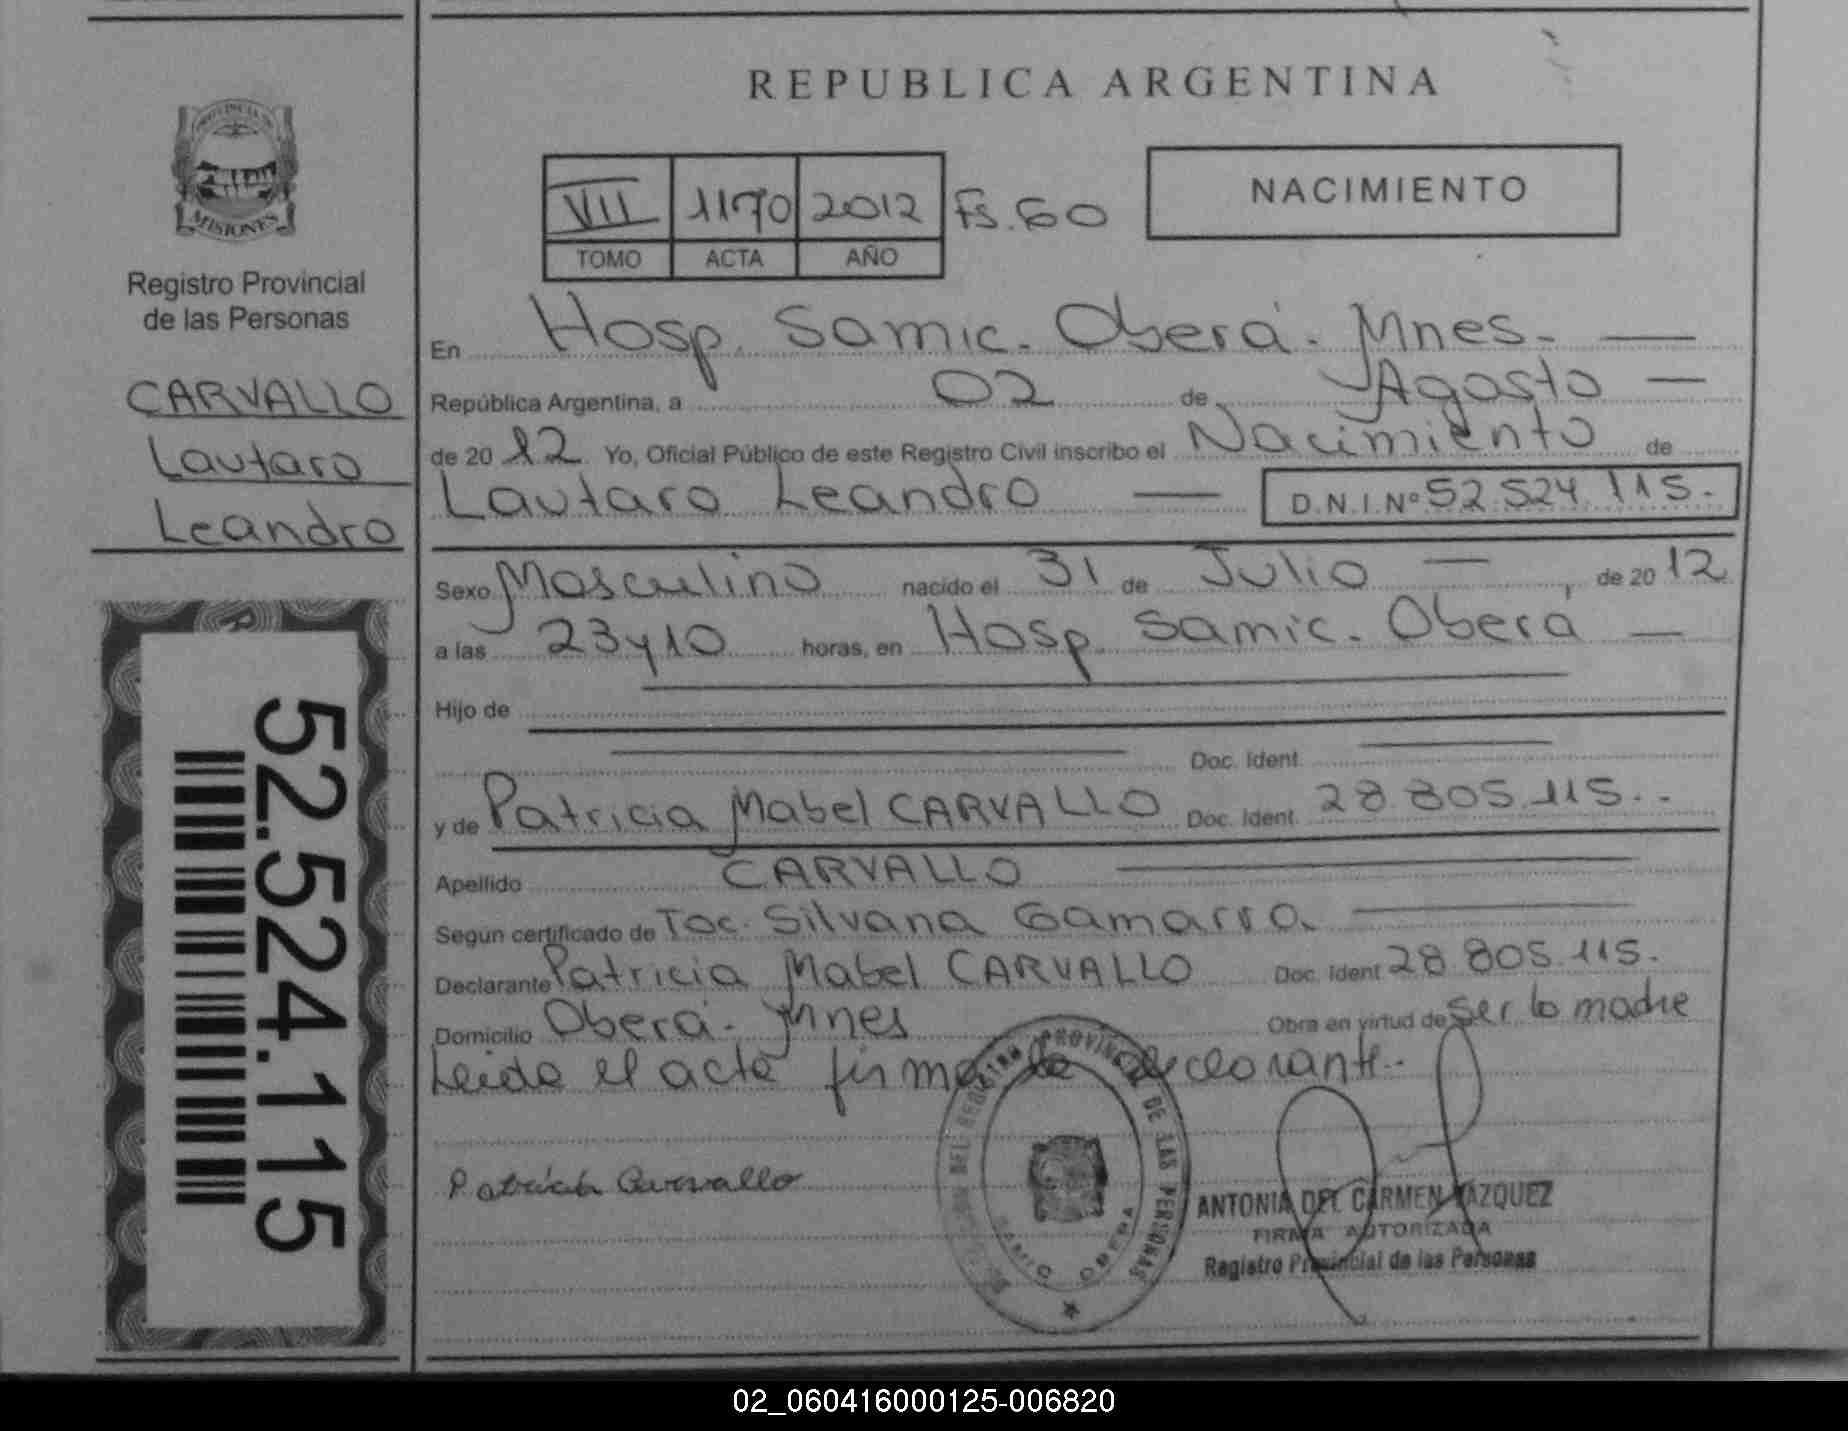 REPUBLICA ARGENTINA
PROVINCIA DE
MISIONES
Registro Provincial
de las Personas
CARVALLO
Lautaro
Leandro
52.524.115
VII 1170 2012 Fs. 60
TOMO ACTA AÑO
NACIMIENTO
En Hosp. Samic. Oberá. Mnes. —
República Argentina, a 02 de Agosto —
de 2012 Yo, Oficial Público de este Registro Civil inscribo el Nacimiento de
Lautaro Leandro — D.N.I.Nº 52.524.115.-
Sexo Masculino nacido el 31 de Julio — , de 2012
a las 23y10 horas, en Hosp. Samic. Oberá —
Hijo de
Doc. Ident.
y de Patricia Mabel CARVALLO Doc. Ident. 28.805.115.-
Apellido CARVALLO
Según certificado de Toc. Silvana Gamarra
Declarante Patricia Mabel CARVALLO Doc. Ident 28.805.115.
Domicilio Oberá. Mnes Obra en virtud de ser la madre
Leida el acta firma la declarante.-
Patricia Carvallo
DEL REGISTRO PROVINCIAL DE LAS PERSONAS
SAMIC OBERA
ANTONIA DEL CARMEN VAZQUEZ
FIRMA AUTORIZADA
Registro Provincial de las Personas
02_060416000125-006820